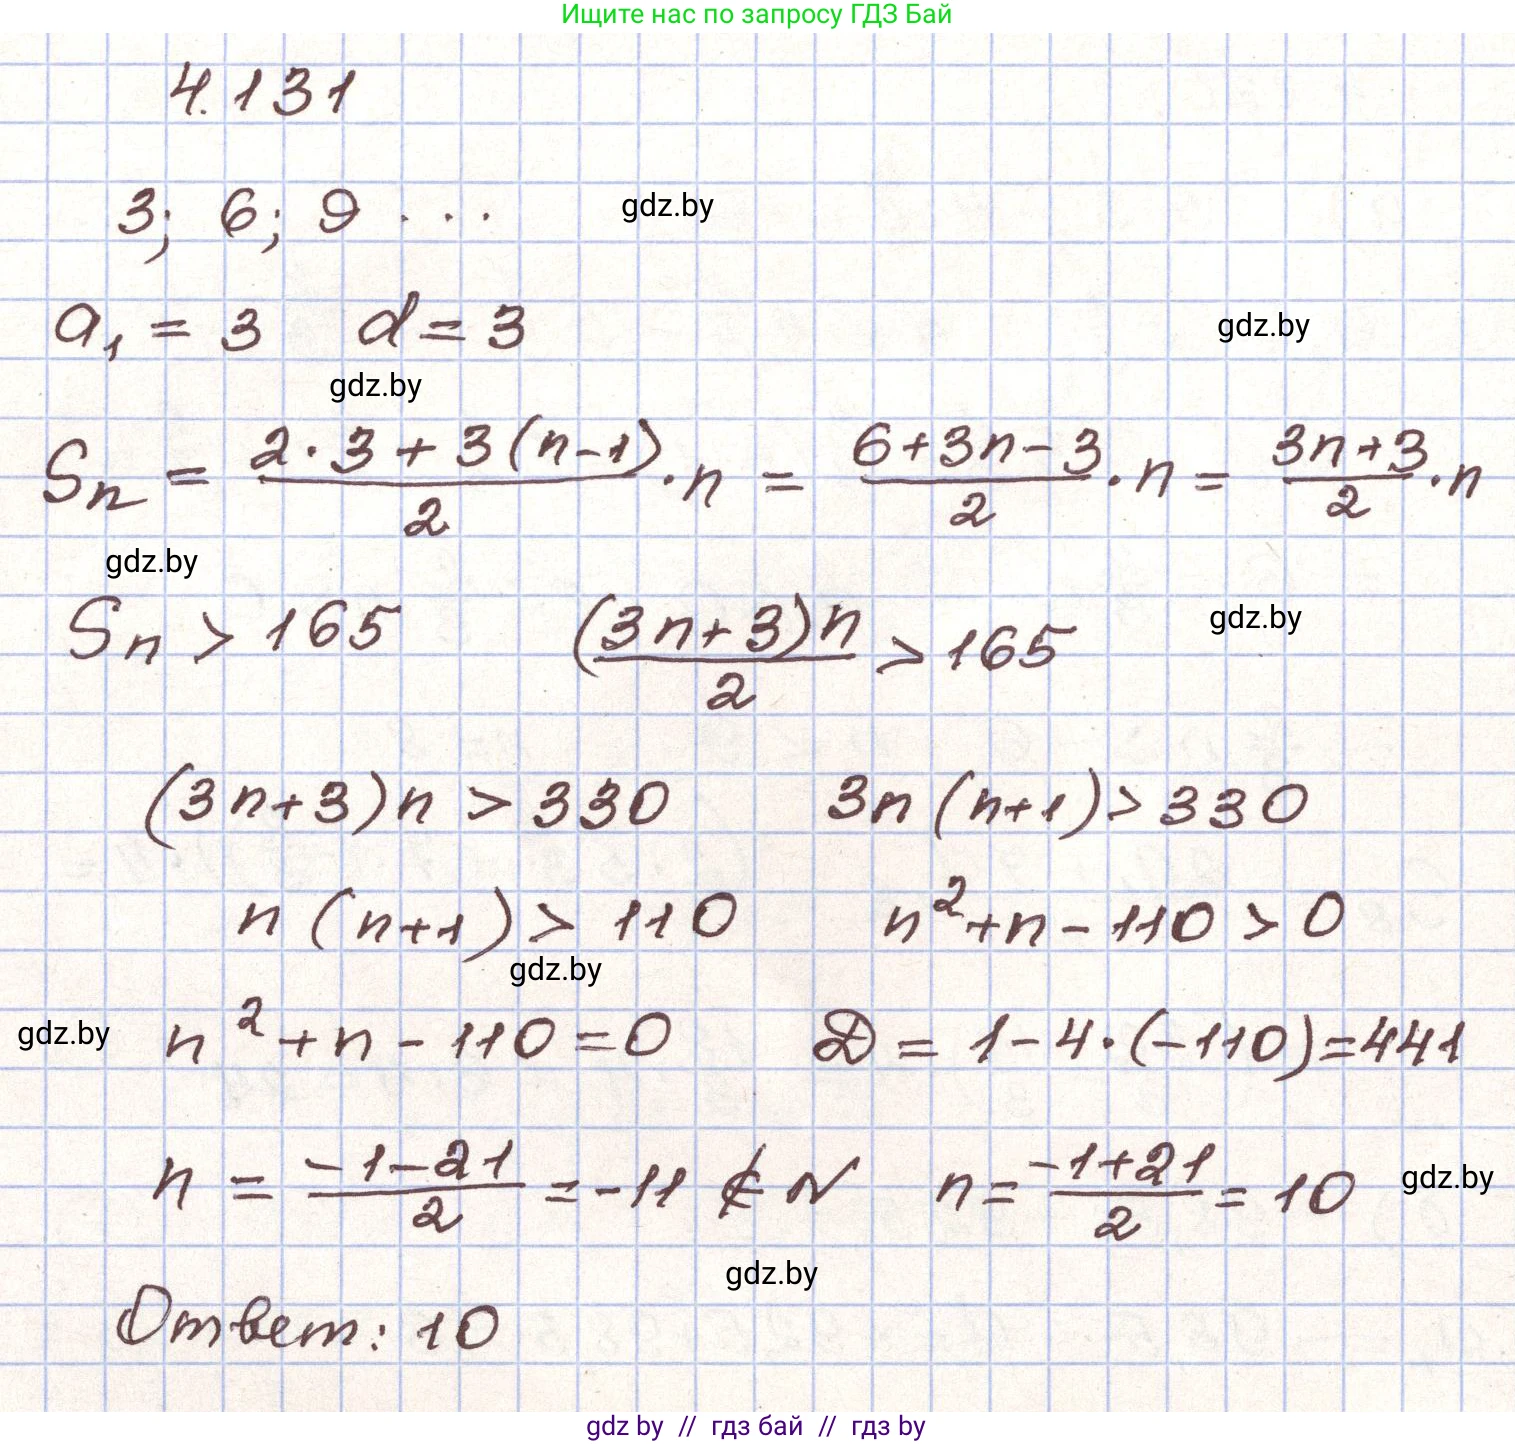 Ищите нас по запросу ГДЗ Бай
4.131
3; 6; 9 ...
gdz.by
a₁ = 3 d = 3
gdz.by
gdz.by
Sₙ = (2·3 + 3(n-1))/2 · n = (6+3n-3)/2 · n = (3n+3)/2 · n
gdz.by
Sₙ > 165 (3n+3)n/2 > 165
gdz.by
(3n+3)n > 330 3n(n+1) > 330
n(n+1) > 110 n²+n-110 > 0
gdz.by
gdz.by
n²+n-110=0 D = 1-4·(-110)=441
n = (-1-21)/2 = -11 ∉ N n = (-1+21)/2 = 10
gdz.by
gdz.by
Ответ: 10
gdz by // гдз бай // гдз by